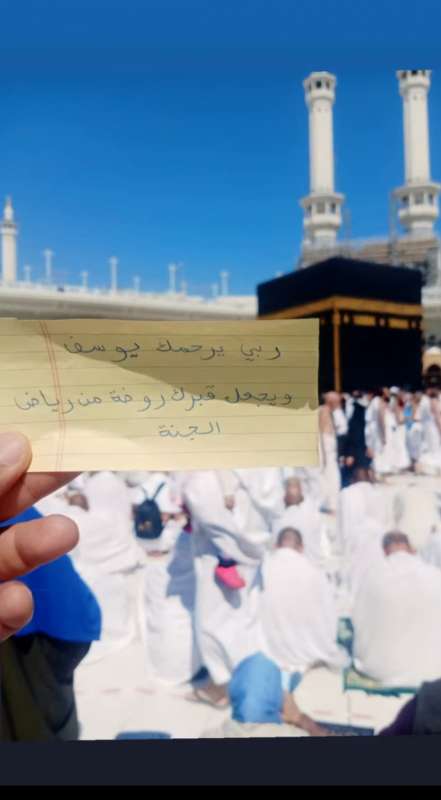 ربي يرحمك يوسف
ويجعل قبرك روضة من رياض
الجنة